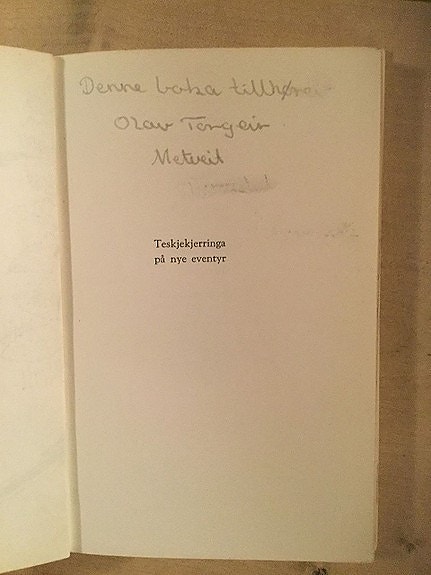 Denne boka tillhører
Olav Torgeir
Metveit
Teskjekjerringa
på nye eventyr